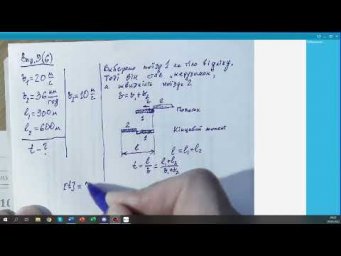 Впр. 9(6)
v₁=20 м/с
v₂=36 км/год
v₂=10 м/с
l₁=900м
l₂=600м
t - ?
Виберемо поїзд 1 за тіло відліку.
Тоді він стає "нерухомим",
а швидкість поїзда 2
v = v₁+v₂
2
1
Початок
2
1
Кінцевий момент
l
l = l₁+l₂
t = l/v = (l₁+l₂)/(v₁+v₂)
[t] =